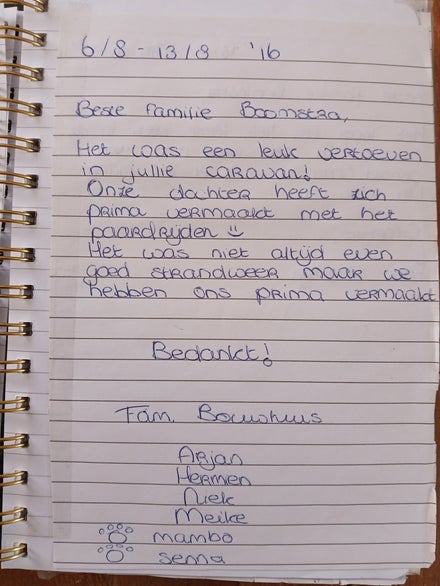 6/8 - 13/8 '16
Beste familie Boomstra,
Het was een leuk vertoeven
in jullie caravan!
Onze dochter heeft zich
prima vermaakt met het
paardrijden
Het was niet altijd even
goed strandweer maar we
hebben ons prima vermaakt
Bedankt!
Fam. Bouwhuis
Arjan
Hermen
Niek
Meike
mambo
senna